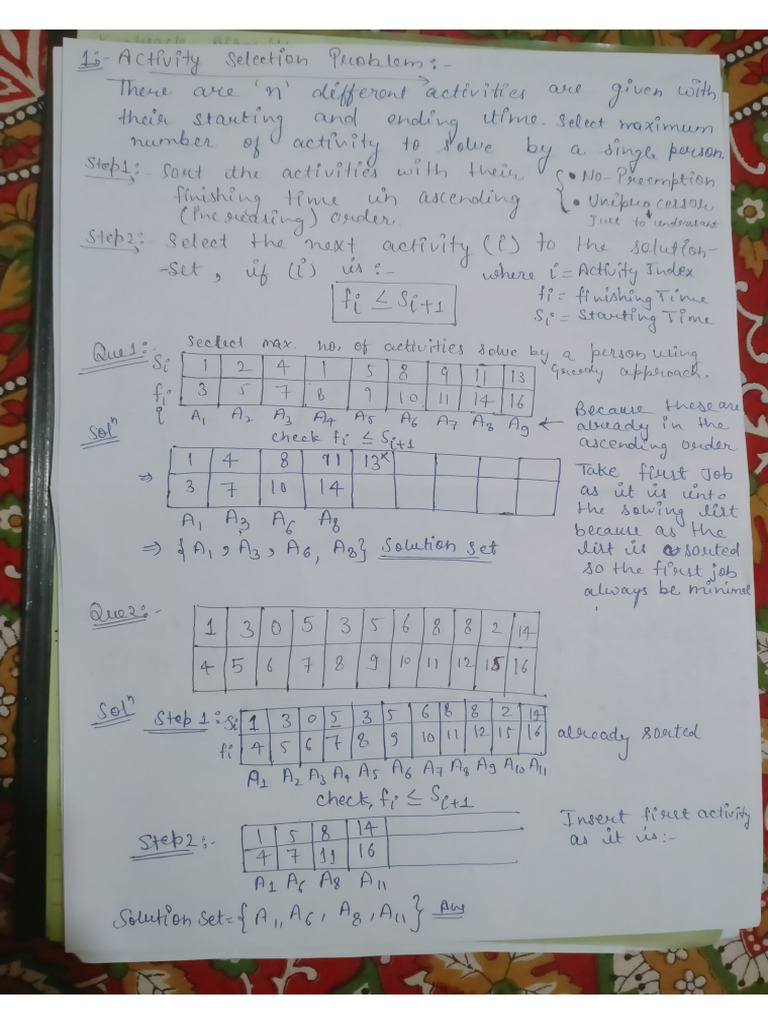 1:- Activity Selection Problem:-
There are 'n' different activities are given with
their starting and ending time. Select maximum
number of activity to solve by a single person.
Step1:- Sort the activities with their
finishing time in ascending
(increasing) order.
{ • No-Preemption
• Uniprocessor
Just to understand
Step2:- Select the next activity (i) to the solution-
-set, if (i) is:-
fi ≤ Si+1
where i = Activity Index
fi = finishing Time
Si = Starting Time
Que1:- Seclect max. no. of activities solve by a person using
Greedy approach.
Si 1 2 4 1 5 8 9 11 13
fi 3 5 7 8 9 10 11 14 16
i A1 A2 A3 A4 A5 A6 A7 A8 A9 ←
Because these are
already in the
ascending order
Soln check fi ≤ Si+1
⇒ 1 4 8 11 13x
3 7 10 14
A1 A3 A6 A8
⇒ {A1, A3, A6, A8} Solution Set
Take first Job
as it is into
the solving list
because as the
list is sorted
so the first job
always be minimal
Que2:-
1 3 0 5 3 5 6 8 8 2 14
4 5 6 7 8 9 10 11 12 15 16
Soln Step 1:- Si 1 3 0 5 3 5 6 8 8 2 14
fi 4 5 6 7 8 9 10 11 12 15 16 already sorted
A1 A2 A3 A4 A5 A6 A7 A8 A9 A10 A11
check, fi ≤ Si+1
Insert first activity
as it is:-
Step2:- 1 5 8 14
4 7 11 16
A1 A6 A8 A11
Solution Set = {A1, A6, A8, A11} Ans